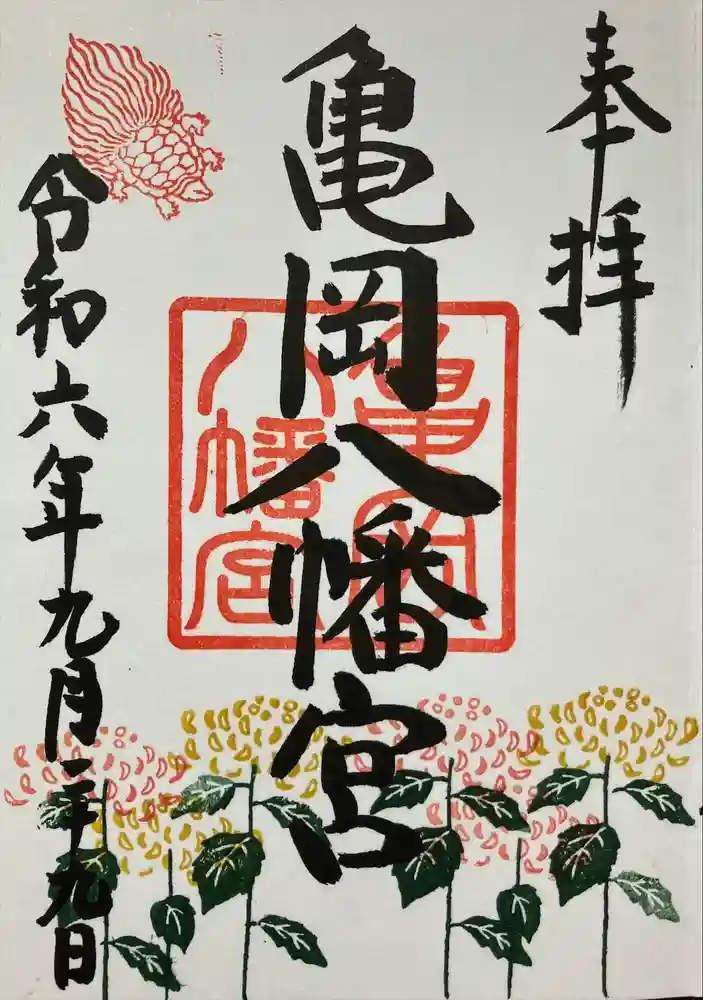 奉拝
亀岡八幡宮
亀岡
八幡宮
令和六年九月二十九日